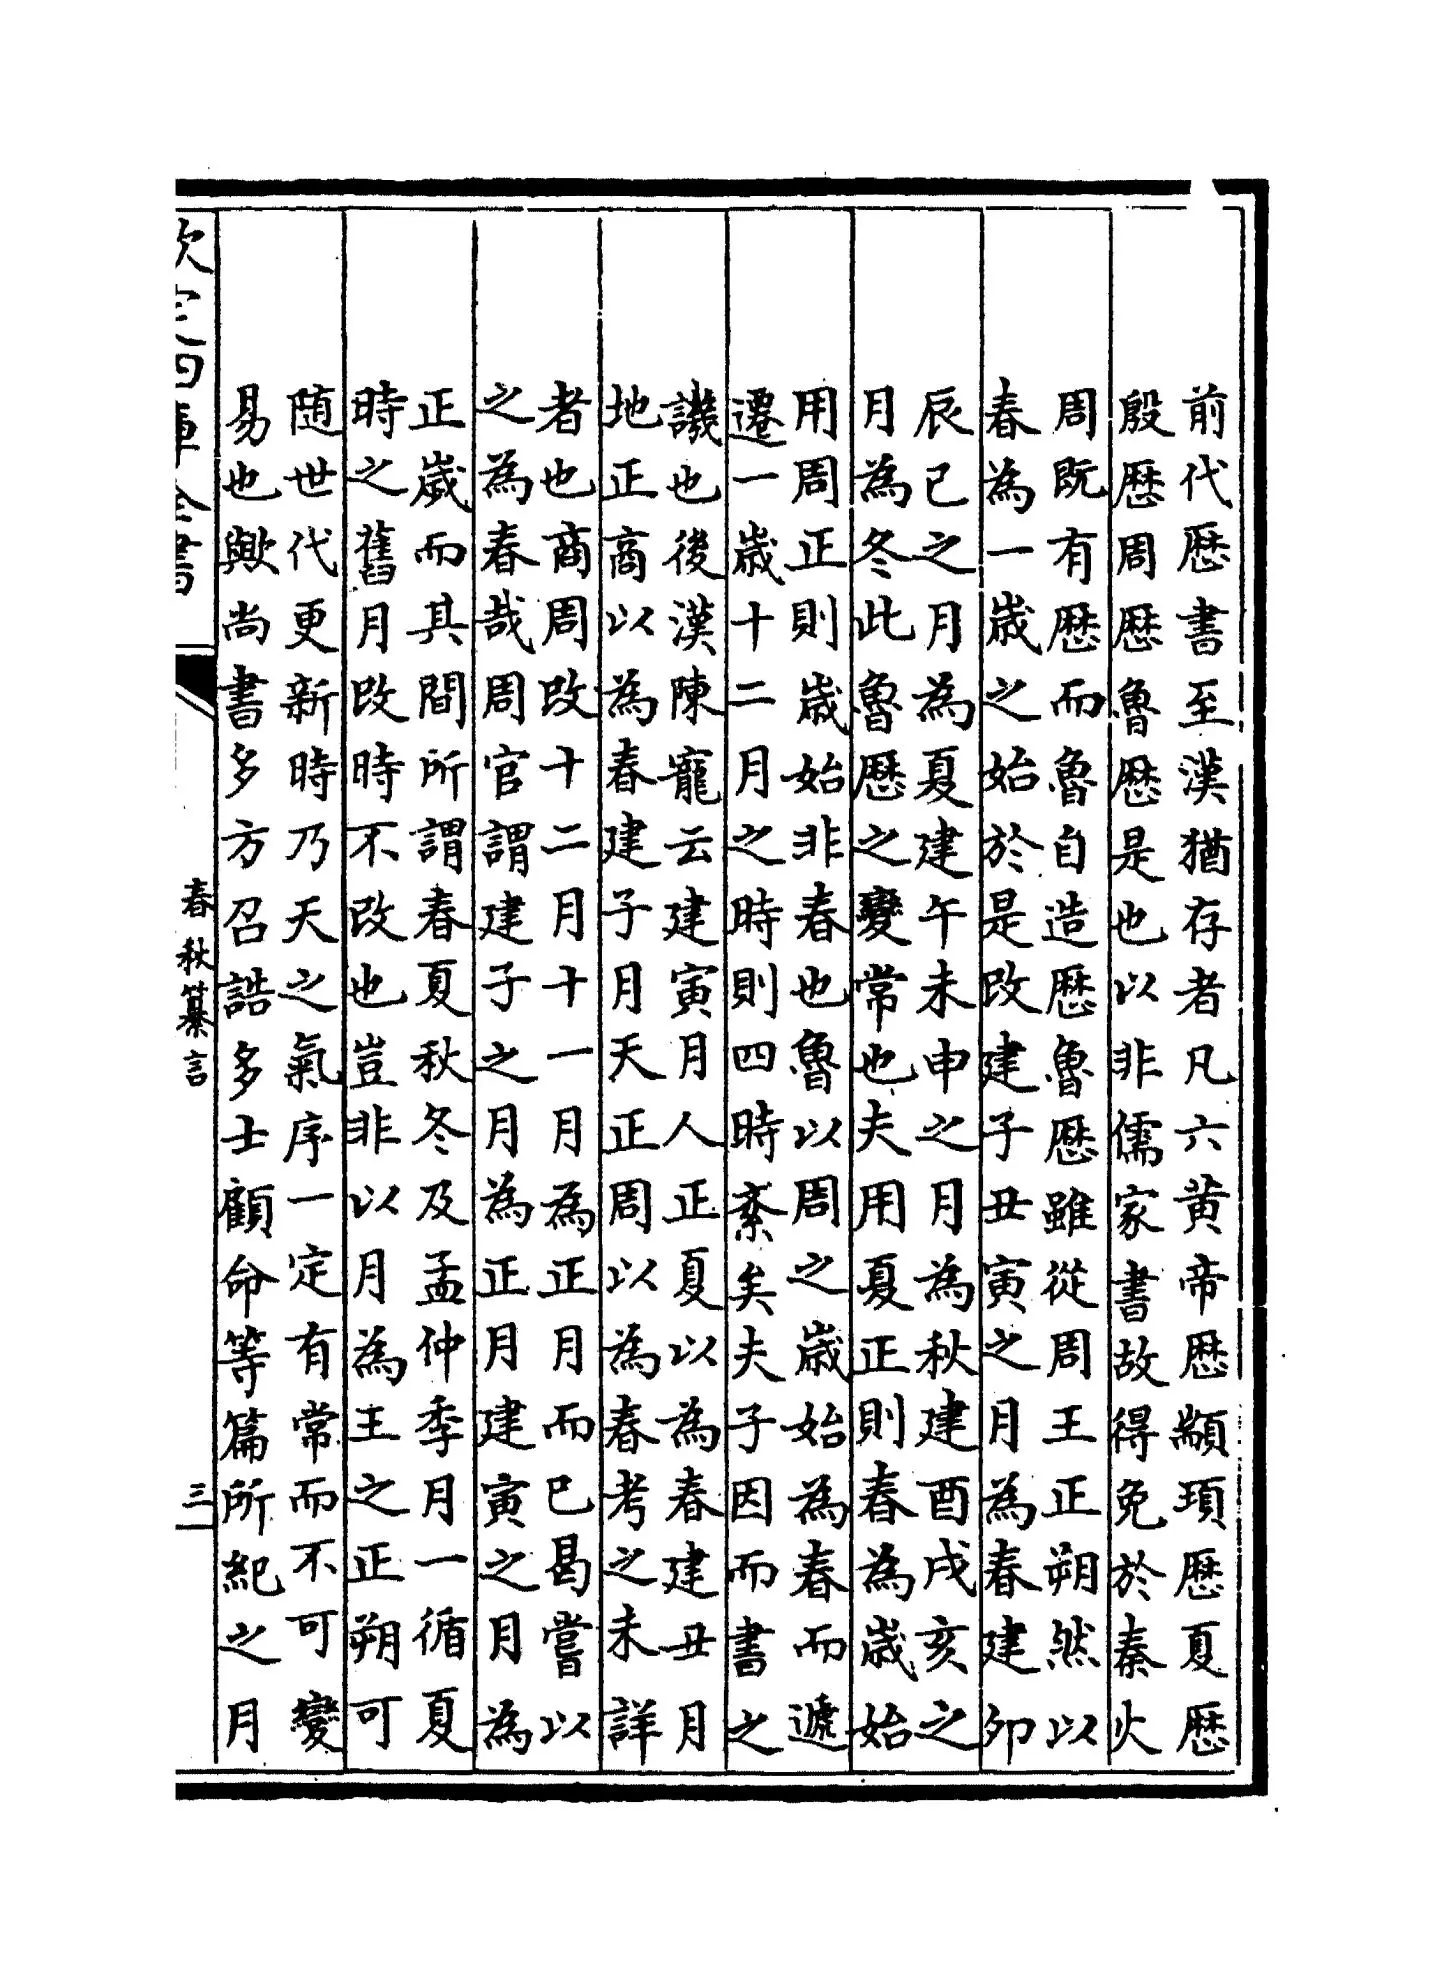 前代歴書至漢猶存者凡六黄帝歴顓頊歴夏歴
殷歴周歴魯歴是也以非儒家書故得免於秦火
周既有歴而魯自造歴魯歴雖從周王正朔然以
春為一歳之始於是改建子丑寅之月為春建夘
辰巳之月為夏建午未申之月為秋建酉戌亥之
月為冬此魯歴之變常也夫用夏正則春為歳始
用周正則歳始非春也魯以周之歳始為春而遞
遷一歳十二月之時則四時紊矣夫子因而書之
譏也後漢陳寵云建寅月人正夏以為春建丑月
地正商以為春建子月天正周以為春考之未詳
者也商周改十二月十一月為正月而已曷嘗以
之為春哉周官謂建子之月為正月建寅之月為
正歳而其間所謂春夏秋冬及孟仲季月一循夏
時之舊月改時不改也豈非以月為王之正朔可
随世代更新時乃天之氣序一定有常而不可變
易也歟尚書多方召誥多士顧命等篇所紀之月
欽定四庫全書
春秋纂言
三